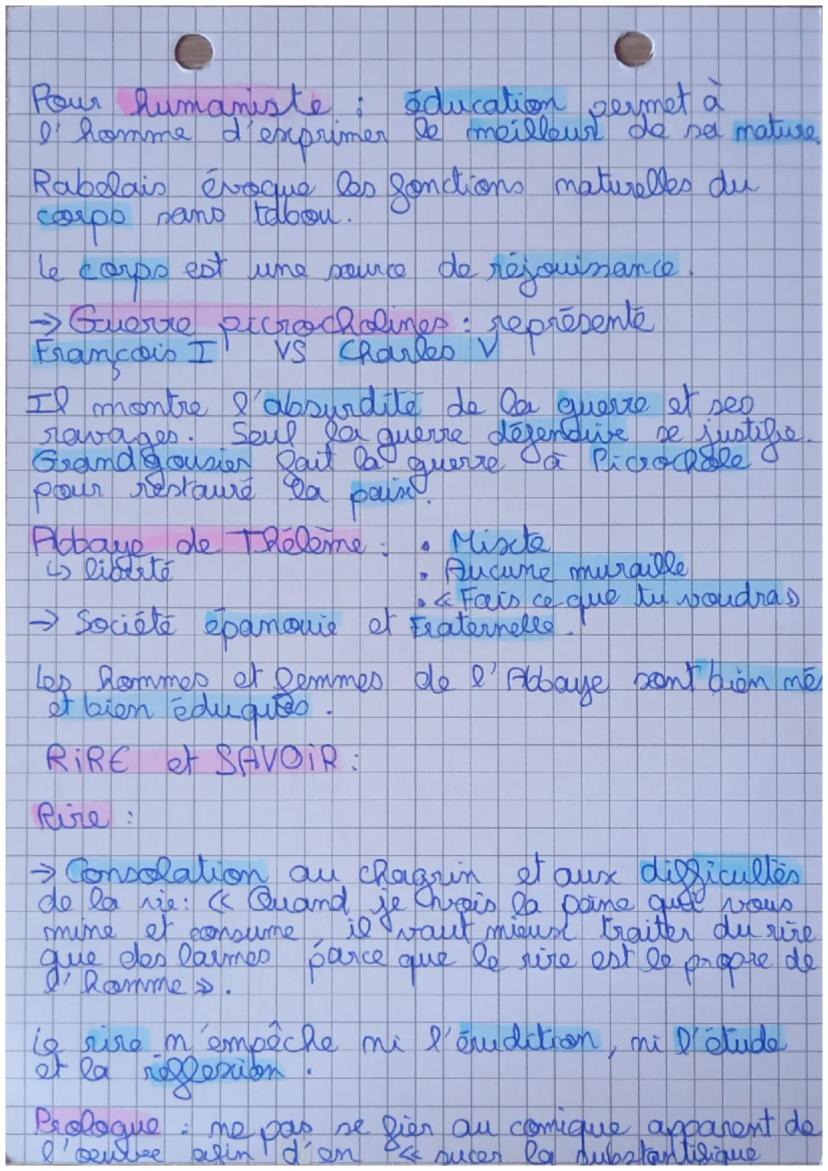 Pour humaniste : éducation permet à
l'homme d'exprimer le meilleur de sa nature.
Rabelais évoque les fonctions naturelles du
corps sans tabou.
Le corps est une source de réjouissance.
→ Guerre picrocholines : représente
François I VS Charles V
Il montre l'absurdité de la guerre et ses
ravages. Seul la guerre défendive se justifie.
Grandgousier fait la guerre à Picrochole
pour restauré la paix.
Abbaye de Thélème : • Mixte
↳ liberté • Aucune muraille
• « Fais ce que tu voudras
→ Société épanouie et Fraternelle.
Les hommes et femmes de l'Abbaye sont bien né
et bien éduqués.
RIRE et SAVOIR :
Rire :
→ Consolation au chagrin et aux difficultés
de la vie : « Quand je vois la peine qui vous
mine et consume, il vaut mieux traiter du rire
que des larmes parce que le rire est le propre de
l'homme ».
Le rire n'empêche ni l'érudition, ni l'étude
et la réflexion.
Prologue : ne pas se fier au comique apparent de
l'oeuvre afin d'en « sucer la substantifique